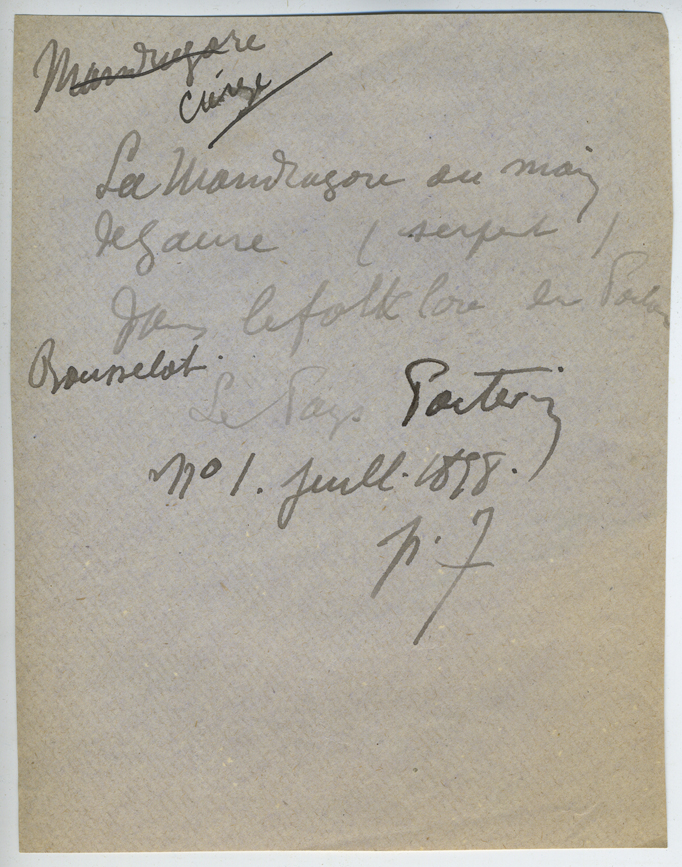 Mandragore
Cierge
La Mandragore ou main
de gaure ( serpent )
dans le folklore en Poitou
Rousselot.
Le Pays Poitevin
no 1. juill. 1898.
p. 7